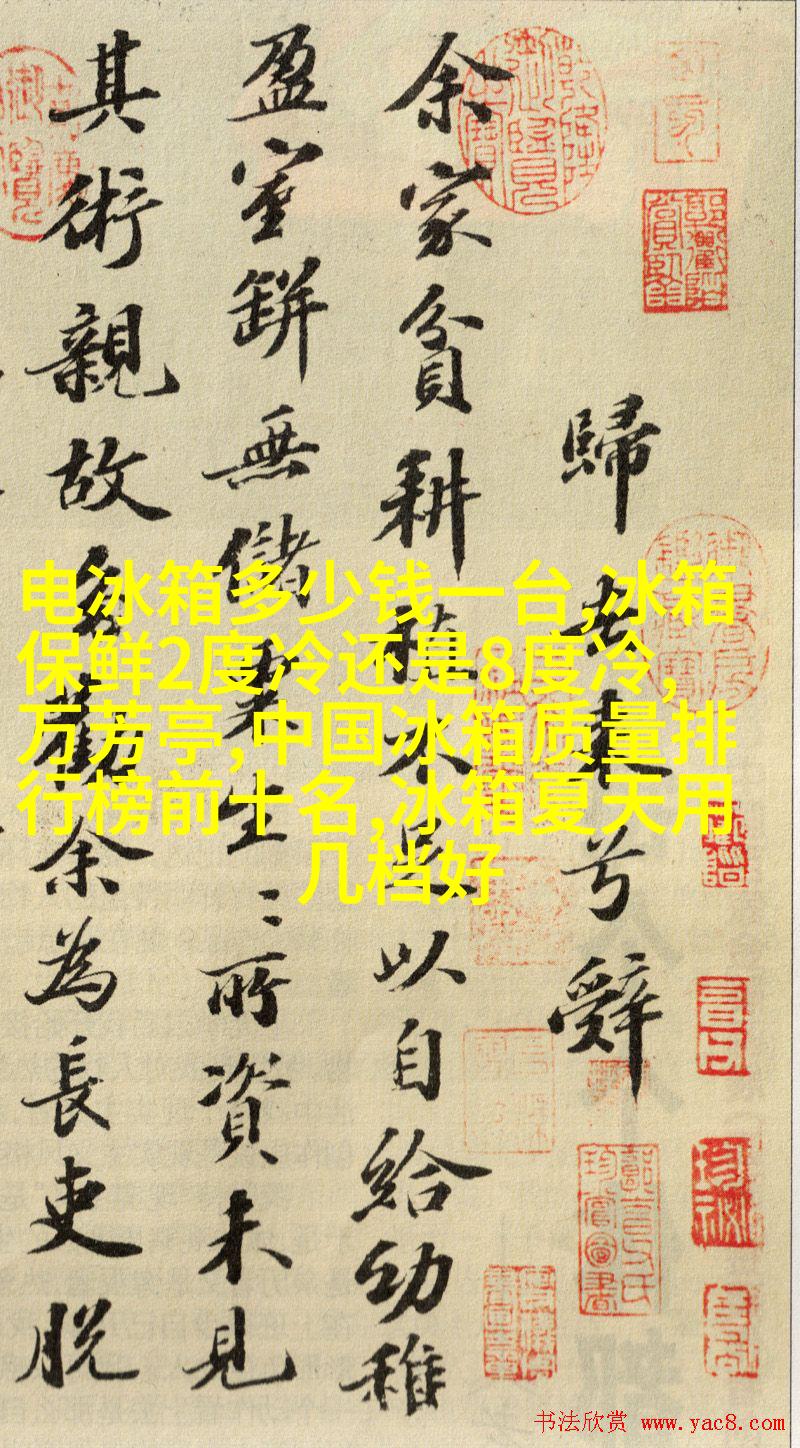 歸去來兮辭
余家貧耕植不足以自給幼稚
盈室缾無儲粟生〻所資未見
其術親故多勸余為長吏脫
电冰箱多少钱一台,冰箱
保鲜2度冷还是8度冷,
万芳亭,中国冰箱质量排
行榜前十名,冰箱夏天用
几档好
书法欣赏 www.yac8.com